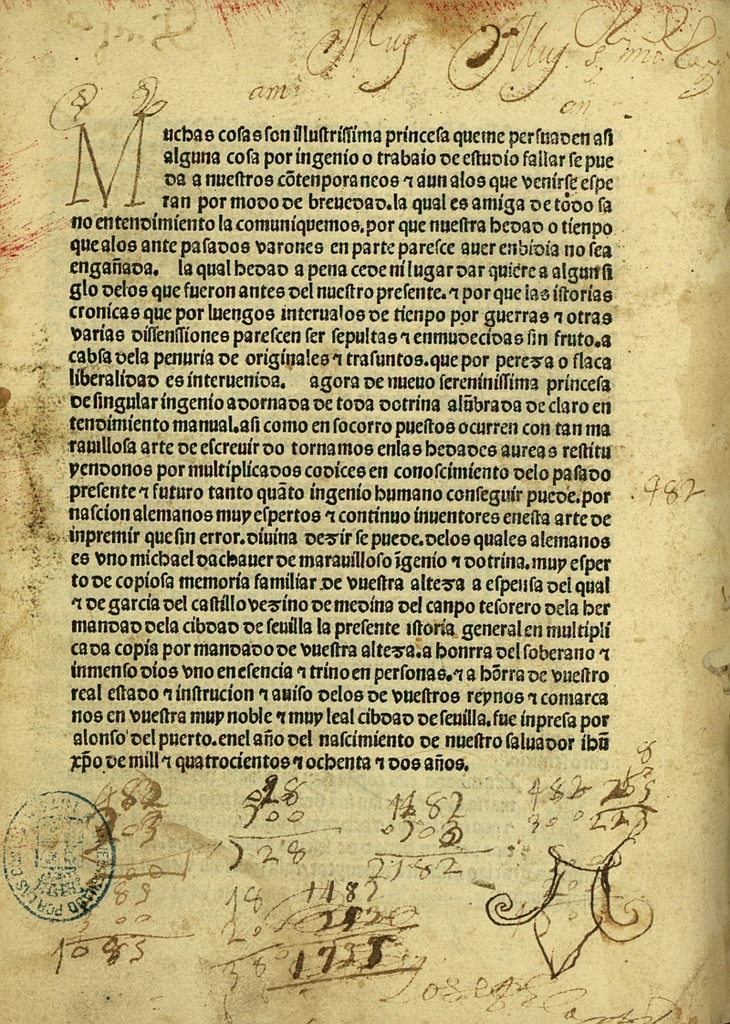 Muy Muy
ami
en
Muchas cosas son illustrissima princesa queme persuaden asi
alguna cosa por ingenio o trabaio de estudio fallar se pue
da a nuestros cõtenporaneos ⁊ aun alos que venirse espe
ran por modo de breuedad.la qual es amiga de todo sa
no entendimiento la comuniquemos.por que nuestra hedad o tienpo
que alos ante pasados varones en parte paresce auer enbidia no sea
engañada. la qual hedad a pena cede ni lugar dar quiere a algun si
glo delos que fueron antes del nuestro presente.⁊ por que las istorias
cronicas que por luengos interualos de tienpo por guerras ⁊ otras
varias dissenssiones parescen ser sepultas ⁊ enmudecidas sin fruto.a
cabsa dela penuria de originales ⁊ trasuntos.que por pereza o flaca
liberalidad es interuenida. agora de nueuo sereninissima princesa
de singular ingenio adornada de toda dotrina alũbrada de claro en
tendimiento manual.asi como en socorro puestos ocurren con tan ma
rauillosa arte de escreuir do tornamos enlas hedades aureas restitu
yendonos por multiplicados codices en conoscimiento delo pasado
presente ⁊ futuro tanto quãto ingenio humano conseguir puede.por
nascion alemanos muy espertos ⁊ continuo inuentores enesta arte de
inpremir que sin error.diuina dezir se puede.delos quales alemanos
es vno michael dachauer de marauilloso ĩgenio ⁊ dotrina.muy esper
to de copiosa memoria familiar de vuestra alteza a espensa del qual
⁊ de garcia del castillo vezino de medina del canpo tesorero dela her
mandad dela cibdad de seuilla la presente istoria general en multipli
cada copia por mandado de vuestra alteza.a honrra del soberano ⁊
inmenso dios vno en esencia ⁊ trino en personas.⁊ a hõrra de vuestro
real estado ⁊ instrucion ⁊ auiso delos de vuestros reynos ⁊ comarca
nos en vuestra muy noble ⁊ muy leal cibdad de seuilla.fue inpresa por
alonso del puerto.enel año del nascimiento de nuestro saluador ihũ
xp̃o de mill ⁊ quatrocientos ⁊ ochenta ⁊ dos años.
482
482
1482
482
728
2182
1085
1482
1735